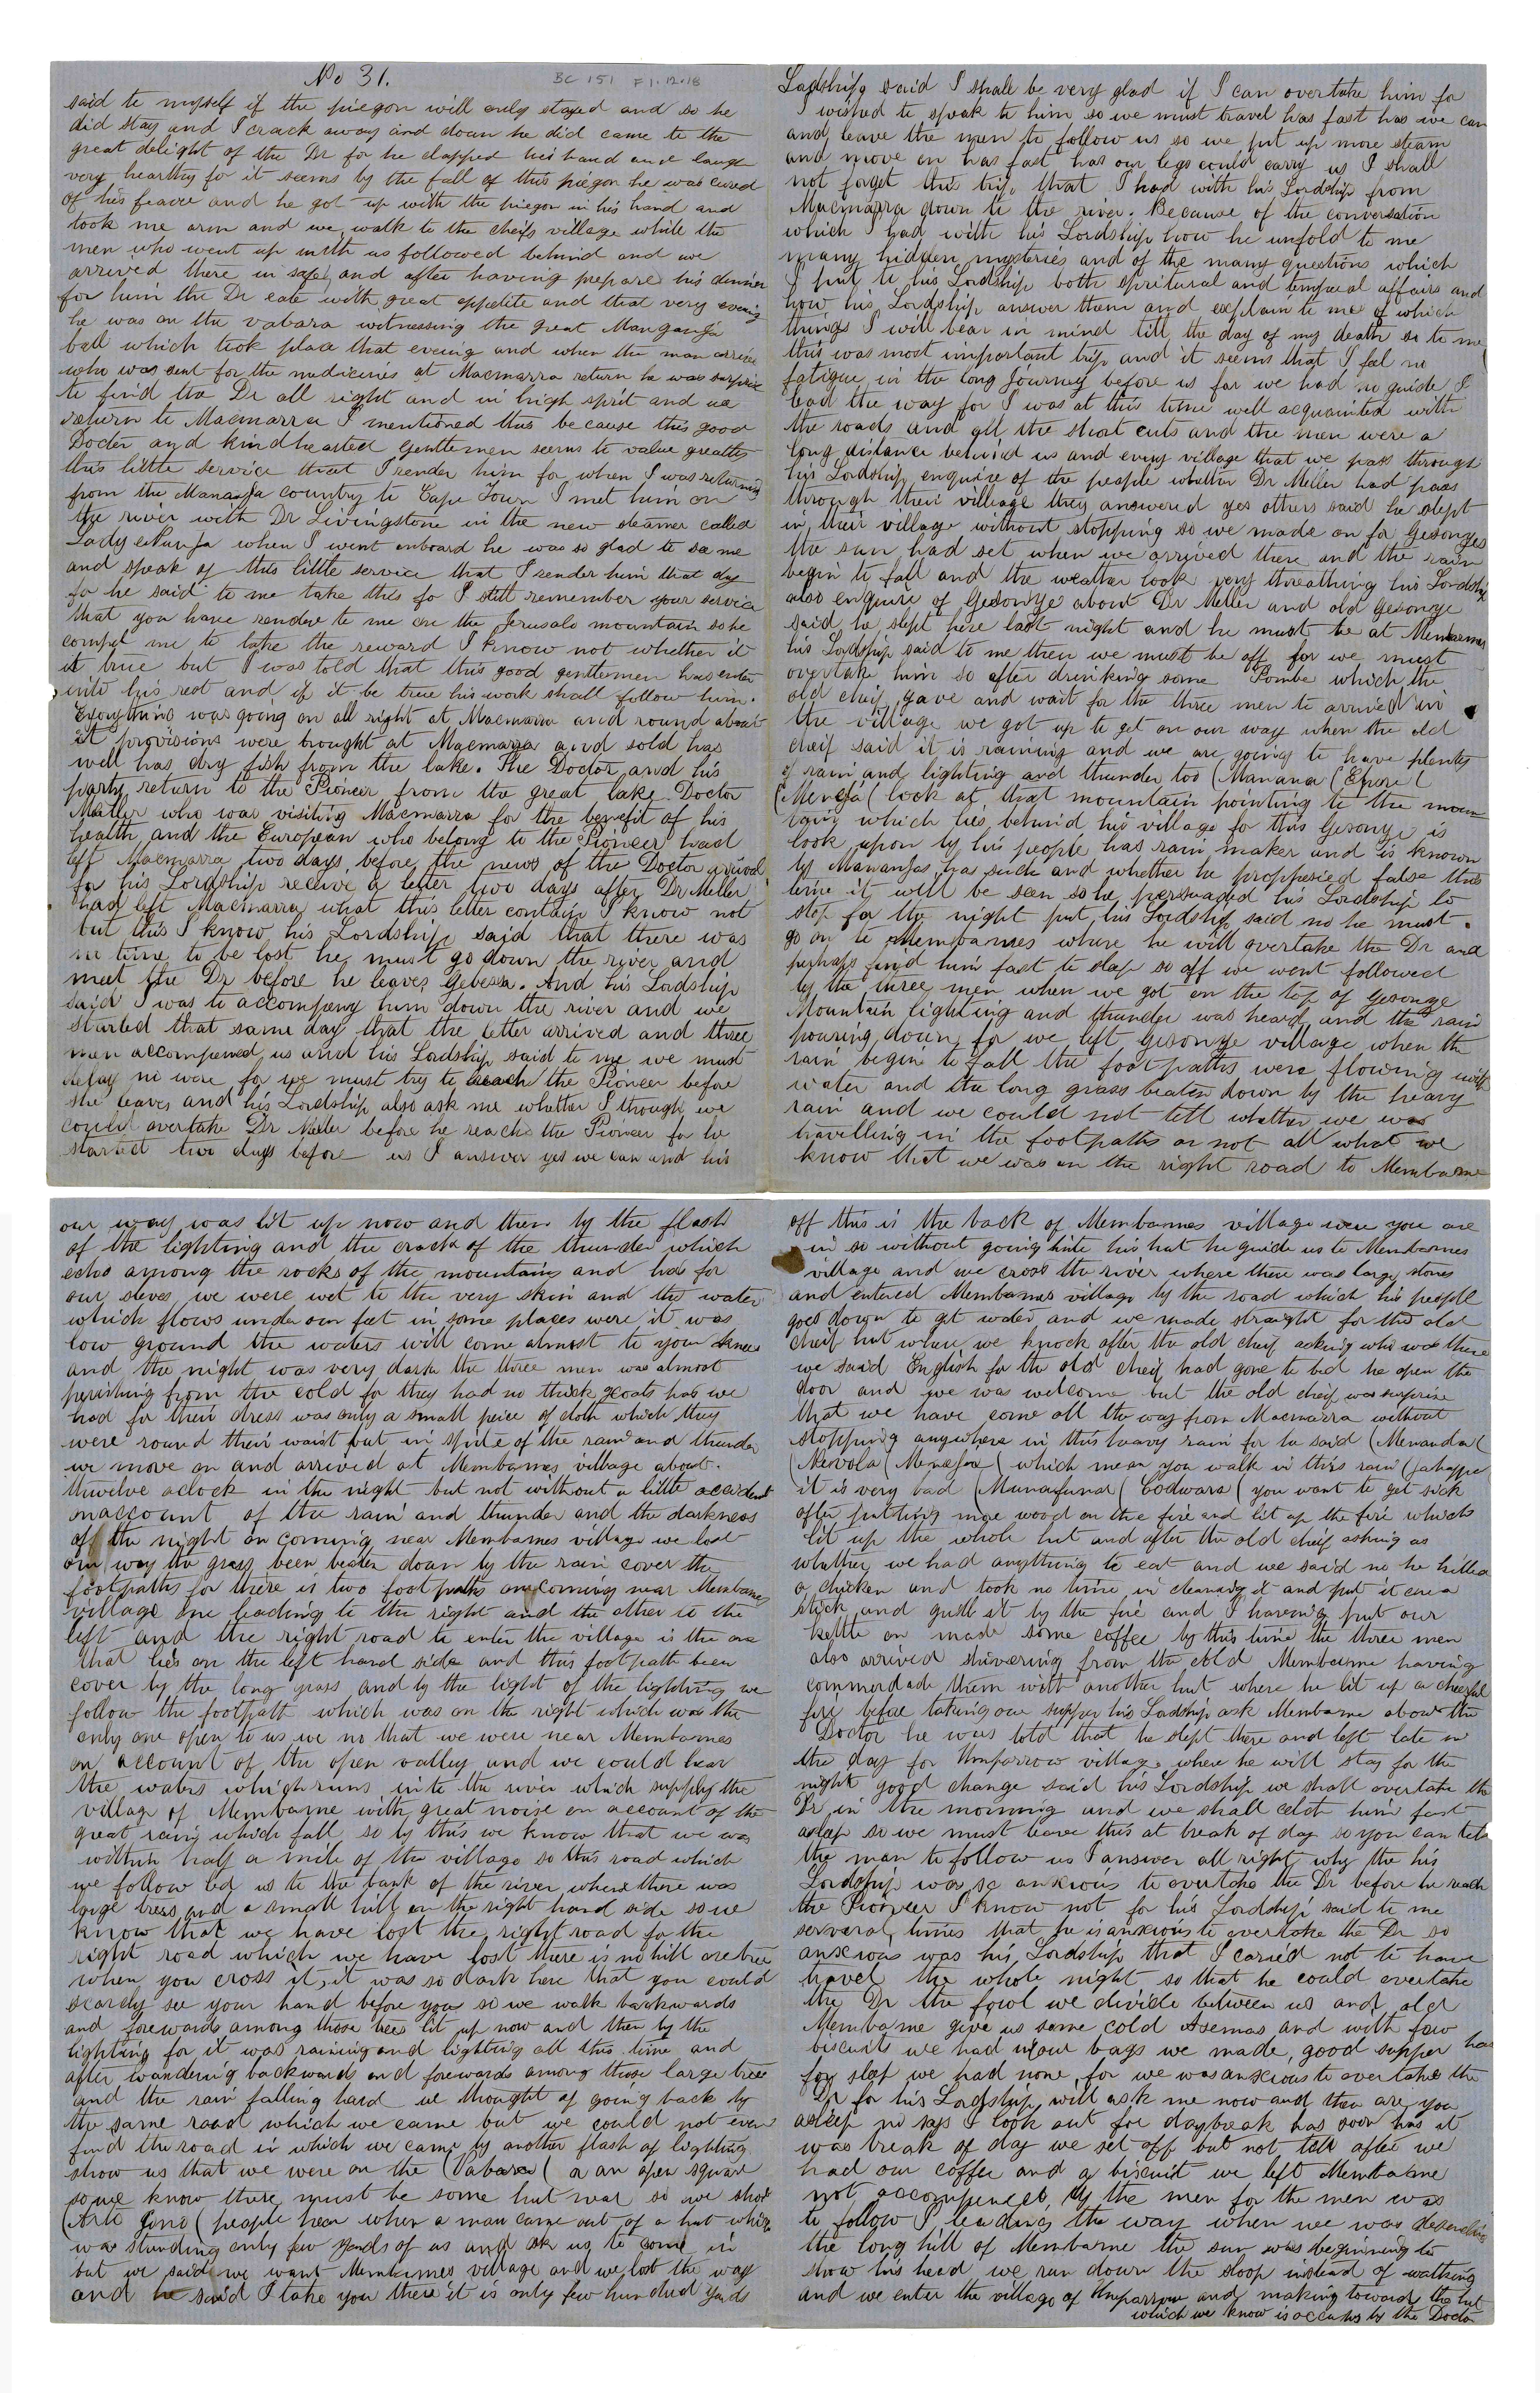 No 31.
BC 151 F1.12.18
said to myself if the piegon will only stayed and so he
did stay and I crack away and down he did came to the
great delight of the Dr for he clapped his hand and laugh
very hearthy for it seems by the fall of this piegon he was cured
of his feavre and he got up with the piegon in his hand and
took me arm and we walk to the cheifs village while the
men who went up with us followed behind and we
arrived there in safe and after having prepare his dinner
for him the Dr eate with great appetite and that very evening
he was on the vabara witnessing the great Manganja
ball which took place that evening and when the man arrive
who was sent for the medicenies at Macmarra return he was surprise
to find the Dr all right and in high sprit and we
return to Macmarra I mentioned this because this good
Docter and kind hearted gentlemen seems to value greatley
this little service that I render him for when I was returning
from the Mananja country to Cape Town I met him on
the river with Dr Livingstone in the new steamer called
Lady eNanja when I went onboard he was so glad to see me
and speak of this little service that I render him that day
for he said to me take this for I still remember your service
that you have rendere to me on the Jerusalo mountain so he
compel me to take the reward I know not whether it
it true but I was told that this good gentlemen has enter
into his rest and if it be true his work shall follow him.
Everything was going on all right at Macmarra and round about
it provisions were brought at Macmarra and sold has
well has dry fish from the lake. The Doctor and his
party return to the Pioneer from the great lake Doctor
Maller who was visiting Macmarra for the benefit of his
health and the European who belong to the Pioneer had
left Macmarra two days before the news of the Doctor arrival
for his Lordship receive a letter two days after Dr Meller
had left Macmarra what this letter contain I know not
but this I know his Lordship said that there was
no time to be lost he must go down the river and
meet the Dr before he leaves Gebessa. And his Lordship
said I was to accompeny him down the river and we
started that same day that the letter arrived and three
men accompened us and his Lordship said to me we must
delay no were for we must try to reach the Pioneer before
she leaves and his Lordship also ask me whether I through we
could overtake Dr Meller before he reach the Pioneer for he
started two days before us I answer yes we can and his
Ladship said I shall be very glad if I can overtake him for
I wished to speak to him so we must travel has fast has we can
and leave the men to follow us so we put up more steam
and move on has fast has our legs could carry us I shall
not forget this trip that I had with his Lordship from
Macmarra down to the river. Because of the conversation
which I had with his Lordship how he unfold to me
many hidden mysteries and of the many questions which
I put to his Lordship both spritural and temporal affairs and
how his Lordship answer them and explain to me of which
things I will bear in mind till the day of my death so to me
this was most important trip and it seems that I feel no
fatigue in the long Journey before us for we had no guide I
lead the way for I was at this time well acquainted with
the roads and all the short cuts and the men were a
long distance behind us and every village that we pass through
his Lordship enquire of the people whether Dr Meller had pass
through their village they answered yes others said he slept
in their village without stopping so we made on for Gesonges
the sun had set when we arrived there and the rain
begin to fall and the weather look very threathing his Lordship
also enquire of Gesonye about Dr Meller and old Gesonye
said he slept here last night and he must be at Membames
his Lordship said to me then we must be off for we must
overtake him so after drinking some Pombe which the
old cheif gave and wait for the three men to arrived in
the village we got up to get on our way when the old
cheif said it is raining and we are going to have plenty
of rain and lighting and thunder too (Manana (Epore (
(Menefa ( look at that mountain pointing to the moun
tain which lies behind his village for this Gesonye is
look upon by his people has rain maker and is known
by Mananjas has such and whether he prophesied false this
time it will be seen so he persuaded his Lordship to
stop for the night put his Lordship said no he must
go on to Membames where he will overtake the Dr and
perhaps find him fast to sleep so off we went followed
by the three men when we got on the top of Gesonge
Mountain lighting and thunder was heard and the rain
pouring down for we left Gesonye village when the
rain begin to fall the footpaths were flowing with
water and the long grass beaten down by the heavy
rain and we could not tell whether we was
travelling in the footpaths or not all what we
know that we was on the right road to Membame
our way was lit up now and then by the flash
of the lighting and the crack of the thunder which
echo among the rocks of the mountains and has for
our selves we were wet to the very skin and the water
which flows under our feet in some places were it was
low ground the waters will come almost to your knees
and the night was very dark the three men was almost
perishing from the cold for they had no thick coats has we
had for their dress was only a small peice of cloth which they
were round their waist but in spite of the rain and thunder
we move on and arrived at Membames village about
thwelve aclock in the night but not without a little accident
onaccount of the rain and thunder and the darkness
off the night on coming near Membames village we lost
our way the grass been beaten down by the rain cover the
footpaths for there is two footpaths on coming near Membames
village one leading to the right and the other to the
left and the right road to enter the village is the one
that lies on the left hand side and this footpath been
cover by the long grass and by the light of the lighting we
follow the footpath which was on the right which was the
only one open to us we no that we were near Membames
on account of the open valley and we could hear
the waters which runs into the river which supply the
village of Membame with great noise on account of the
great rain which fall so by this we know that we was
within half a mile of the village so this road which
we follow led us to the bank of the river where there was
large trees and a small hill on the right hand side so we
know that we have lost the right road for the
right road which we have lost there is no hill are tree
when you cross it, it was so dark here that you could
scarcly see your hand before you so we walk backwards
and forewards among those trees lit up now and then by the
lighting for it was raining and lighting all this time and
after wandering backwards and forewards among those large trees
and the rain falling hard we thought of going back by
the same road which we came but we could not even
find the road in which we came by another flash of lighting
show us that we were on the (Vabara ( or an open square
so we know there must be some hut near so we shout
(Arto gono ( people hear when a man came out of a hut which
was standing only few yards of us and ask us to come in
but we said we want Membames village and we lost the way
and he said I take you there it is only few hundred yards
off this is the back of Membames village were you are
in so without going into his hut he guide us to Membames
village and we cross the river where there was large stones
and entered Membames village by the road which his people
goes down to get water, and we made straight for the old
cheif hut when we knock after the old cheif asking who was there
we said English for the old cheif had gone to bed he open the
door and we was welcome but the old cheif was surprise
that we have come all the way from Macmarra without
stopping anywhere in this heavy rain for he said (Menanda (
(Nervola (Menefa ( which mean you walk in this rain
it is very bad (Munafuna ( Codwara ( you want to get sick
after putting more wood on the fire and lit up the fire which
lit up the whole hut and after the old cheif asking us
whether we had anything to eat and we said no he killed
a chicken and took no time in cleaning it and put it on a
stick and grill it by the fire and I having put our
kettle on made some coffee by this time the three men
also arrived shivering from the cold Membame having
commordade them with another hut where he lit up a cheerful
fire before taking our supper his Lordship ask Membame about the
Doctor he was told that he slept there and left late in
the day for Umparrow village where he will stay for the
night good change said his Lordship we shall overtake the
Dr in the morning and we shall catch him fast
asleep so we must leave this at break of day so you can tell
the man to follow us I answer all right why the his
Lordship was so anxious to overtake the Dr before he reach
the Pioneer I know not for his Lordship said to me
serveral times that he is anxious to overtake the Dr so
anxious was his Lordship that I caried not to have
travel the whole night so that he could overtake
the Dr the fowl we divide between us and old
Membame give us some cold Asemas and with few
biscuits we had in our bags we made good supper has
for sleep we had none for we was anxious to overtake the
Dr for his Lordship will ask me now and then are you
asleep no says I look out for daybreak has soon has it
was break of day we set off but not till after we
had our coffee and a biscuit we left Membame
not accompened by the men for the men was
to follow I leading the way when we was desending
the long hill of Membame the sun was beginning to
show his head we run down the sloop instead of walking
and we enter the village of Umparrow and making toward the hut
which we know is occupy by the Doctor